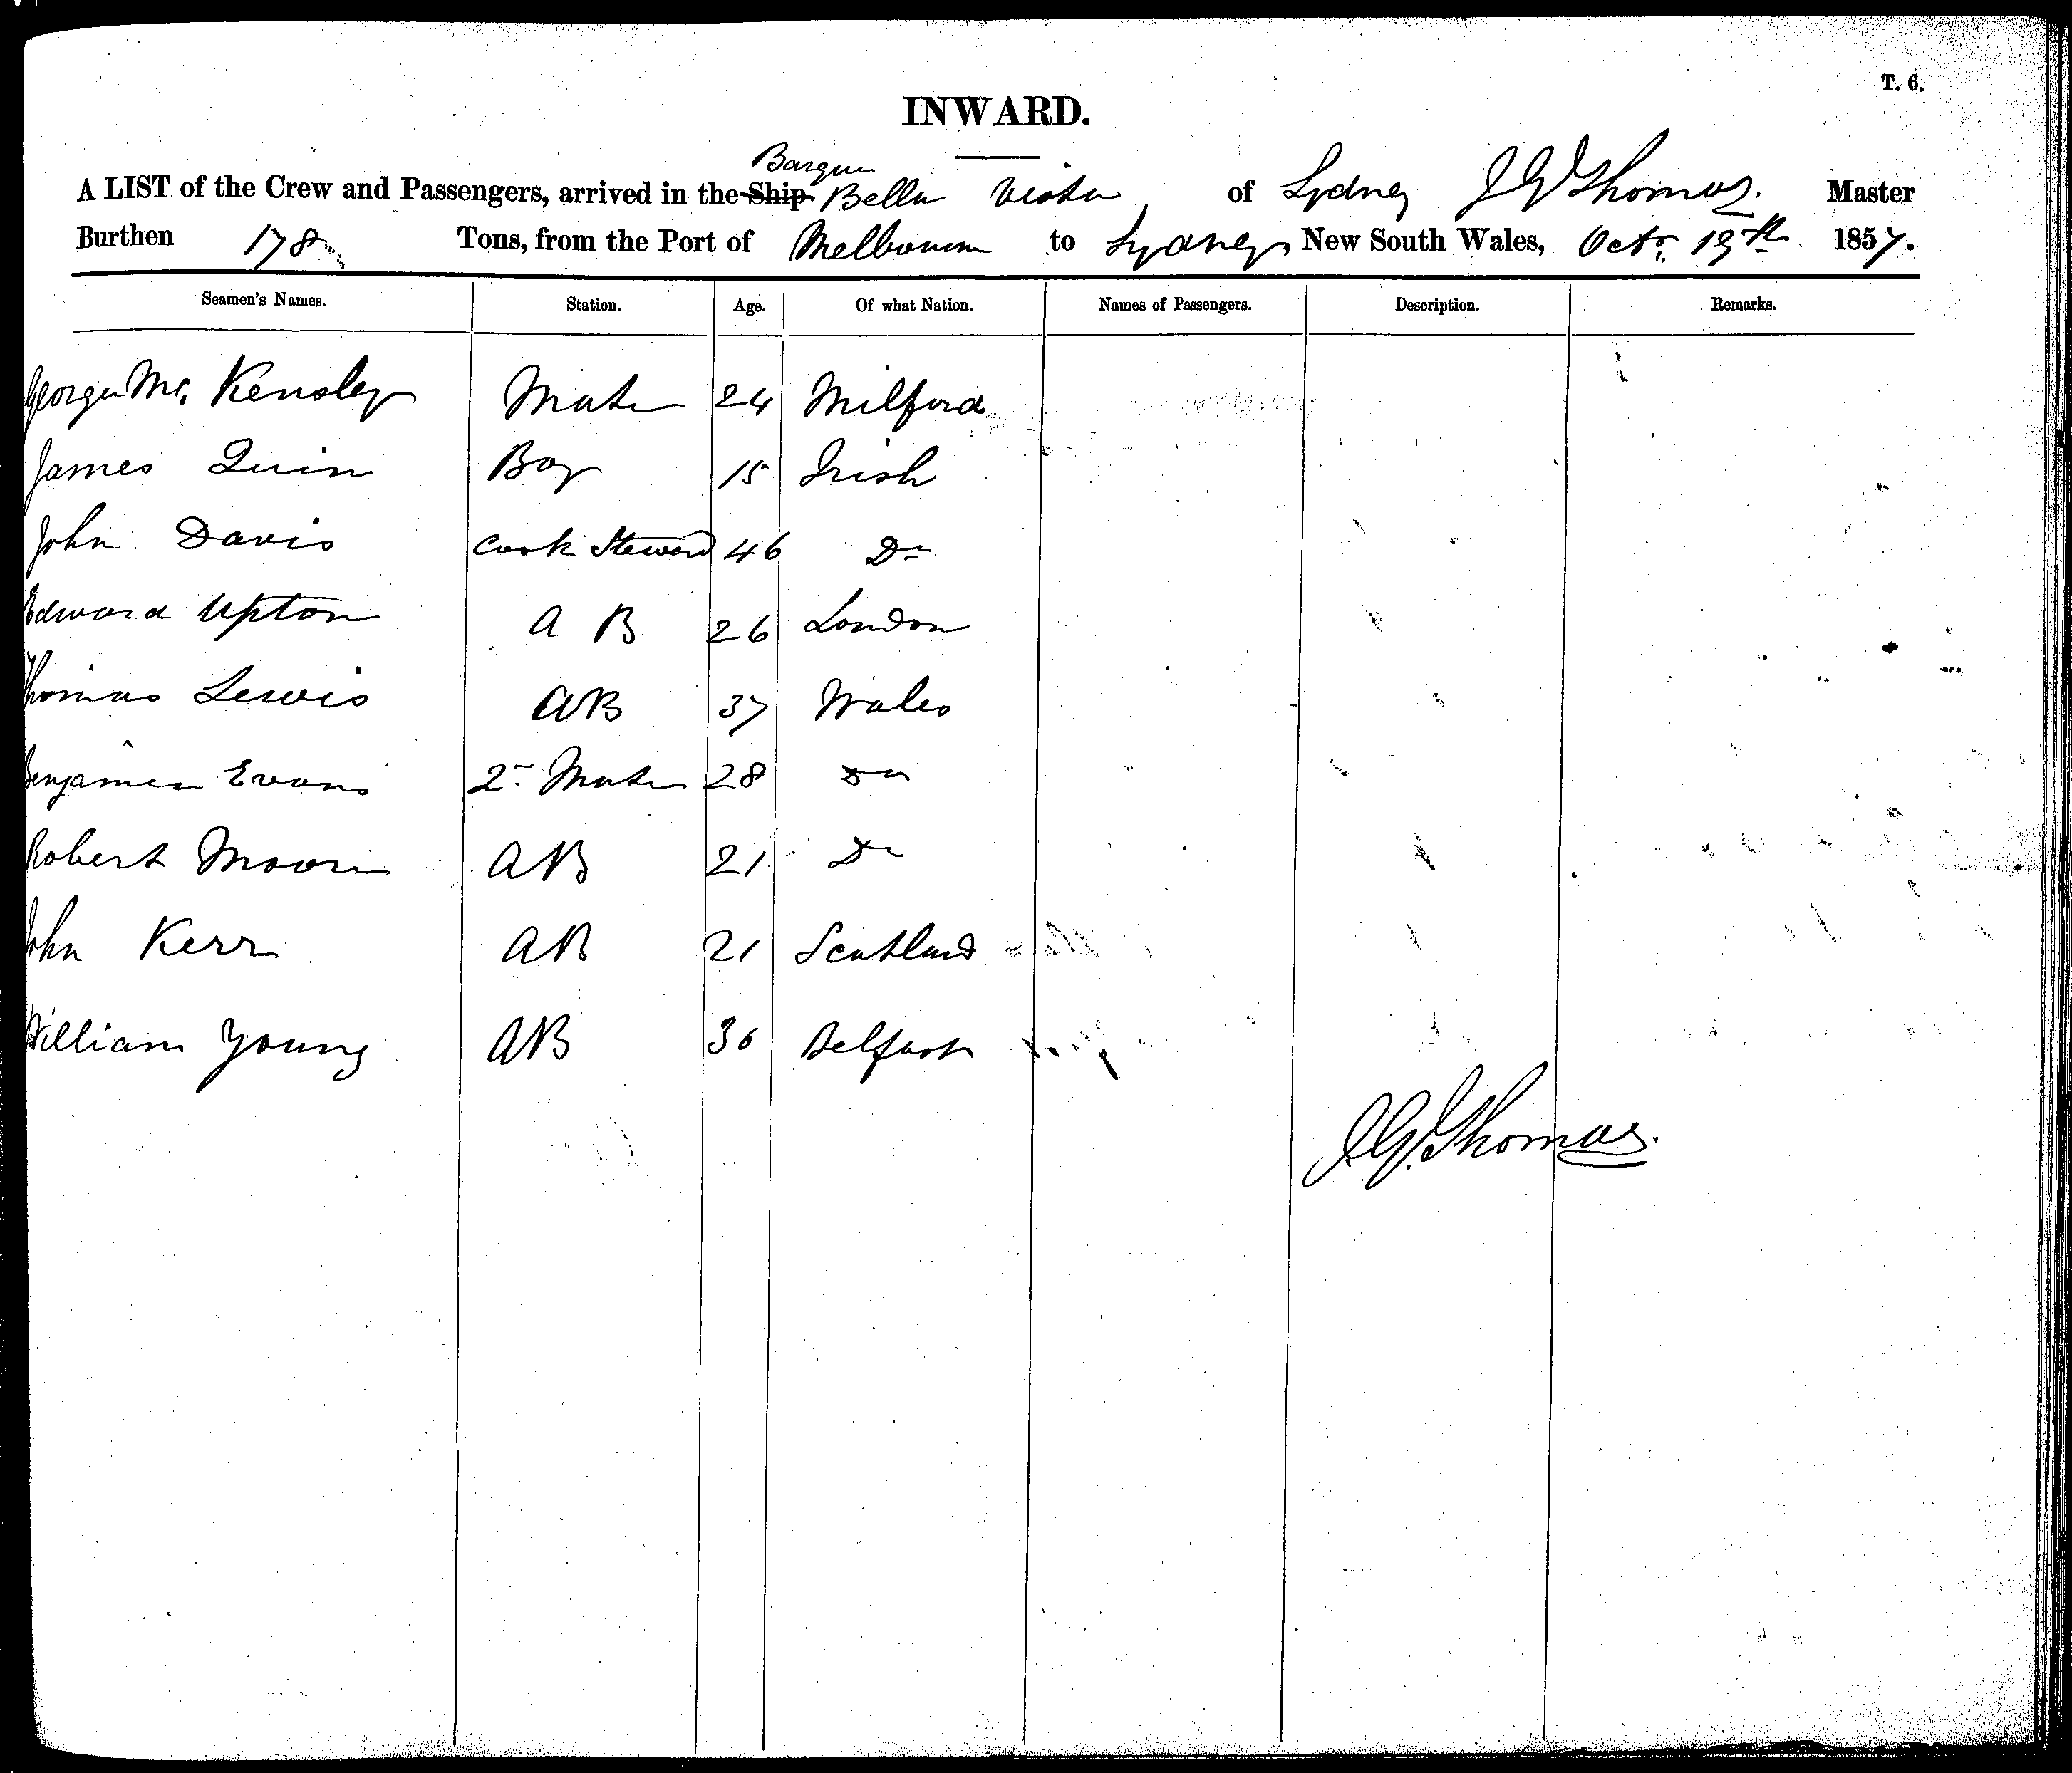 T. 6.
INWARD.
Barque
A LIST of the Crew and Passengers, arrived in the Ship Bella Vista of Sydney J G Thomas. Master
Burthen 178 Tons, from the Port of Melbourne to Sydney, New South Wales, Octr. 19th 1857.
Seamen's Names. Station. Age. Of what Nation. Names of Passengers. Description. Remarks.
George Mc. Kensley Mate 24 Milford
James Quin Boy 15 Irish
John Davis Cook Steward 46 Do
Edward Upton A B 26 London
Thomas Lewis AB 37 Wales
Benjamin Evans 2nd Mate 28 Do
Robert Moore AB 21 Do
John Kerr AB 21 Scotland
William Young AB 30 Belfast
J.G. Thomas.